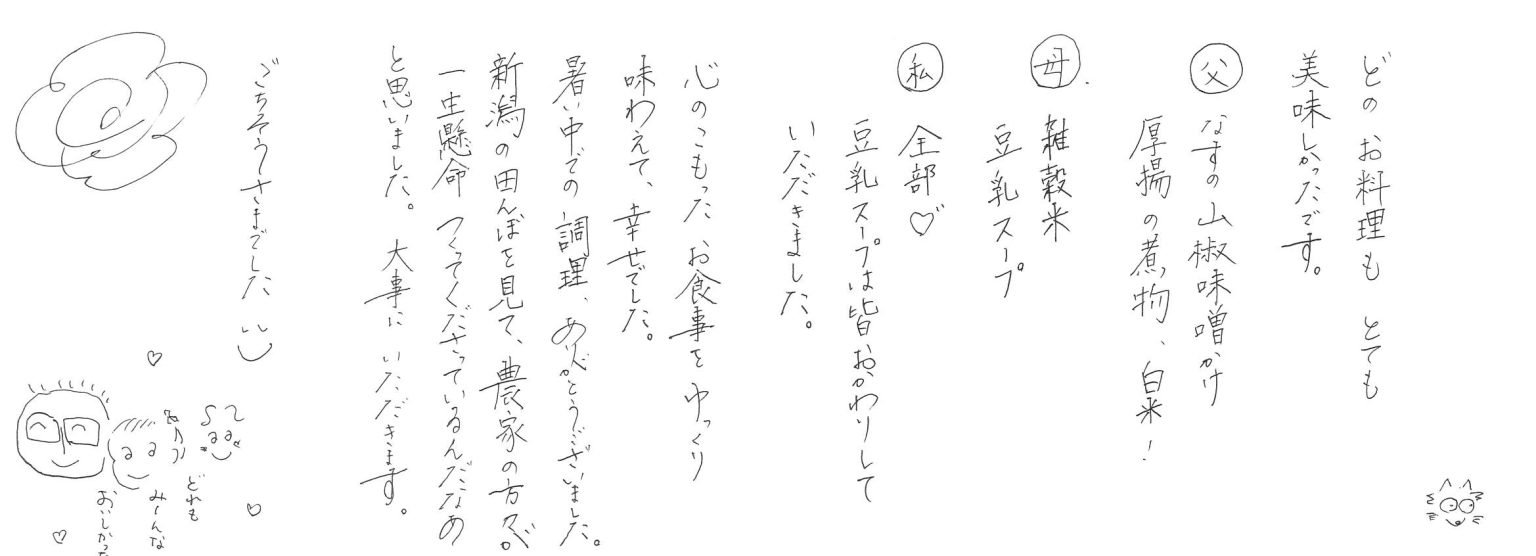 どの お料理も とても
美味しかったです。
父 なすの山椒味噌かけ
厚揚の煮物、白米!
母 雑穀米
豆乳スープ
私 全部♡
豆乳スープは皆おかわりして
いただきました。
心のこもった お食事を ゆっくり
味わえて、幸せでした。
暑い中での 調理、ありがとうございました。
新潟の田んぼを見て、農家の方々が
一生懸命 つくってくださっているんだなあ
と思いました。 大事に いただきます。
ごちそうさまでした
どれも
み〜んな
おいしかった